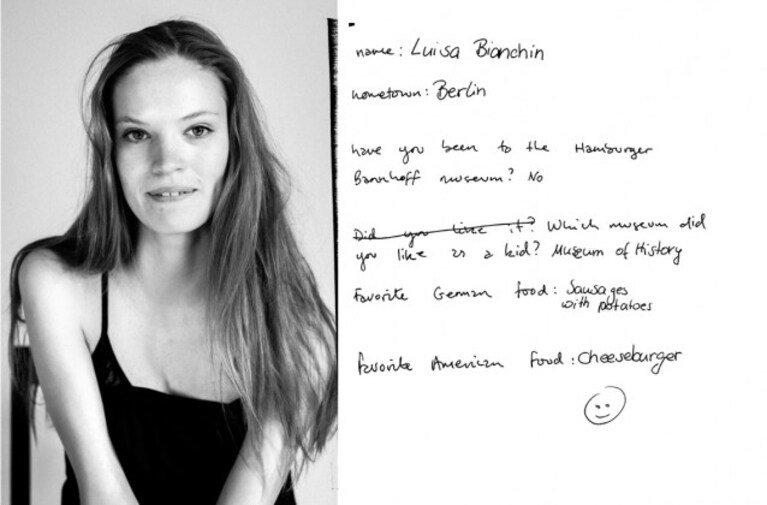 name: Luisa Bianchin
hometown: Berlin
have you been to the Hamburger
Bannhoff museum? No
Did you like it? Which museum did
you like as a kid? Museum of History
Favorite German food: Sausages
with potatoes
favorite American food: Cheeseburger